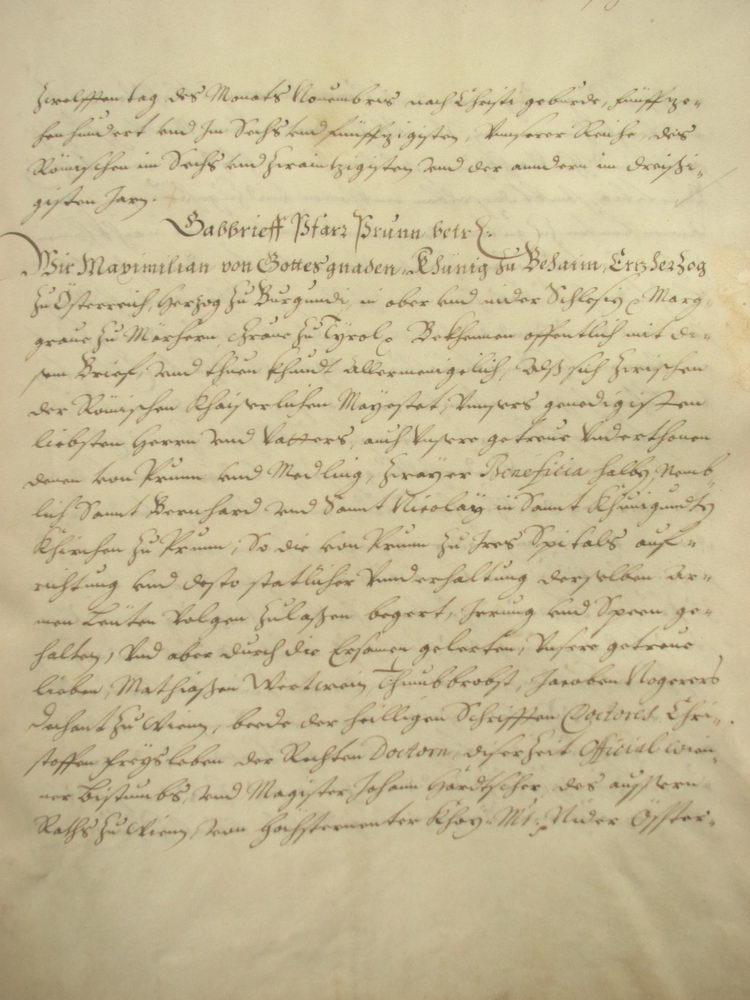 Zwelfften tag des Monats Nouembris nach Christi geburde, fünffze-
hen hundert vnd Im Sechs vnd fünffzigisten, Vnnserer Reiche, des
Römischen im Sechs vnd zwaintzigisten vnd der anndern im dreissi-
gisten Jarn.
Gabbrieff Pfarr Prunn betr:
Wir Maximilian von Gottes gnaden, Khünig zu Behaim, Ertzherzog
zu Österreich, Herzog zu Burgundi, in ober vnd nider Schlesin, Marg-
graue zu Märhern, Graue zu Tyrol, Bekhennen offentlich mit di-
sem Brief, vnd thuen khundt Allermenigelich, Alß sich zwischen
der Römischen Khaiserlichen Mayestat, Vnnsers genedigisten
liebsten Herrn vnd Vatters, auch Vnsere getreue Vnderthonen
denen von Prunn vnd Medling, zwayer Beneficia halber, Nemb-
lich Sannt Bernhard vnd Sannt Nicolay in Sannt Khunigundty
Khirchen zu Prunn, So die von Prunn zu Ires Spitals auf-
richtung vnd desto statlicher Vnnderhaltung derselben Ar-
men Leüten Volgen zulassen begert, Irrung vnd Speen ge-
halten, Vnd aber durch die Ersamen gelerten, Vnsere getreue
lieben, Mathiaßen Wertwein Thumbbrobst, Jacoben
Dechant zu Wienn, beede der heilligen Schrifften Doctores, Chri-
stoffen freysleben der Rechten Doctorn, diser Zeit Official Wien-
ner Bistumbs, vnd Magister Johann des aussern
Raths zu Wienn, von Höchsternenter Khay: Mt: Nider Össter-